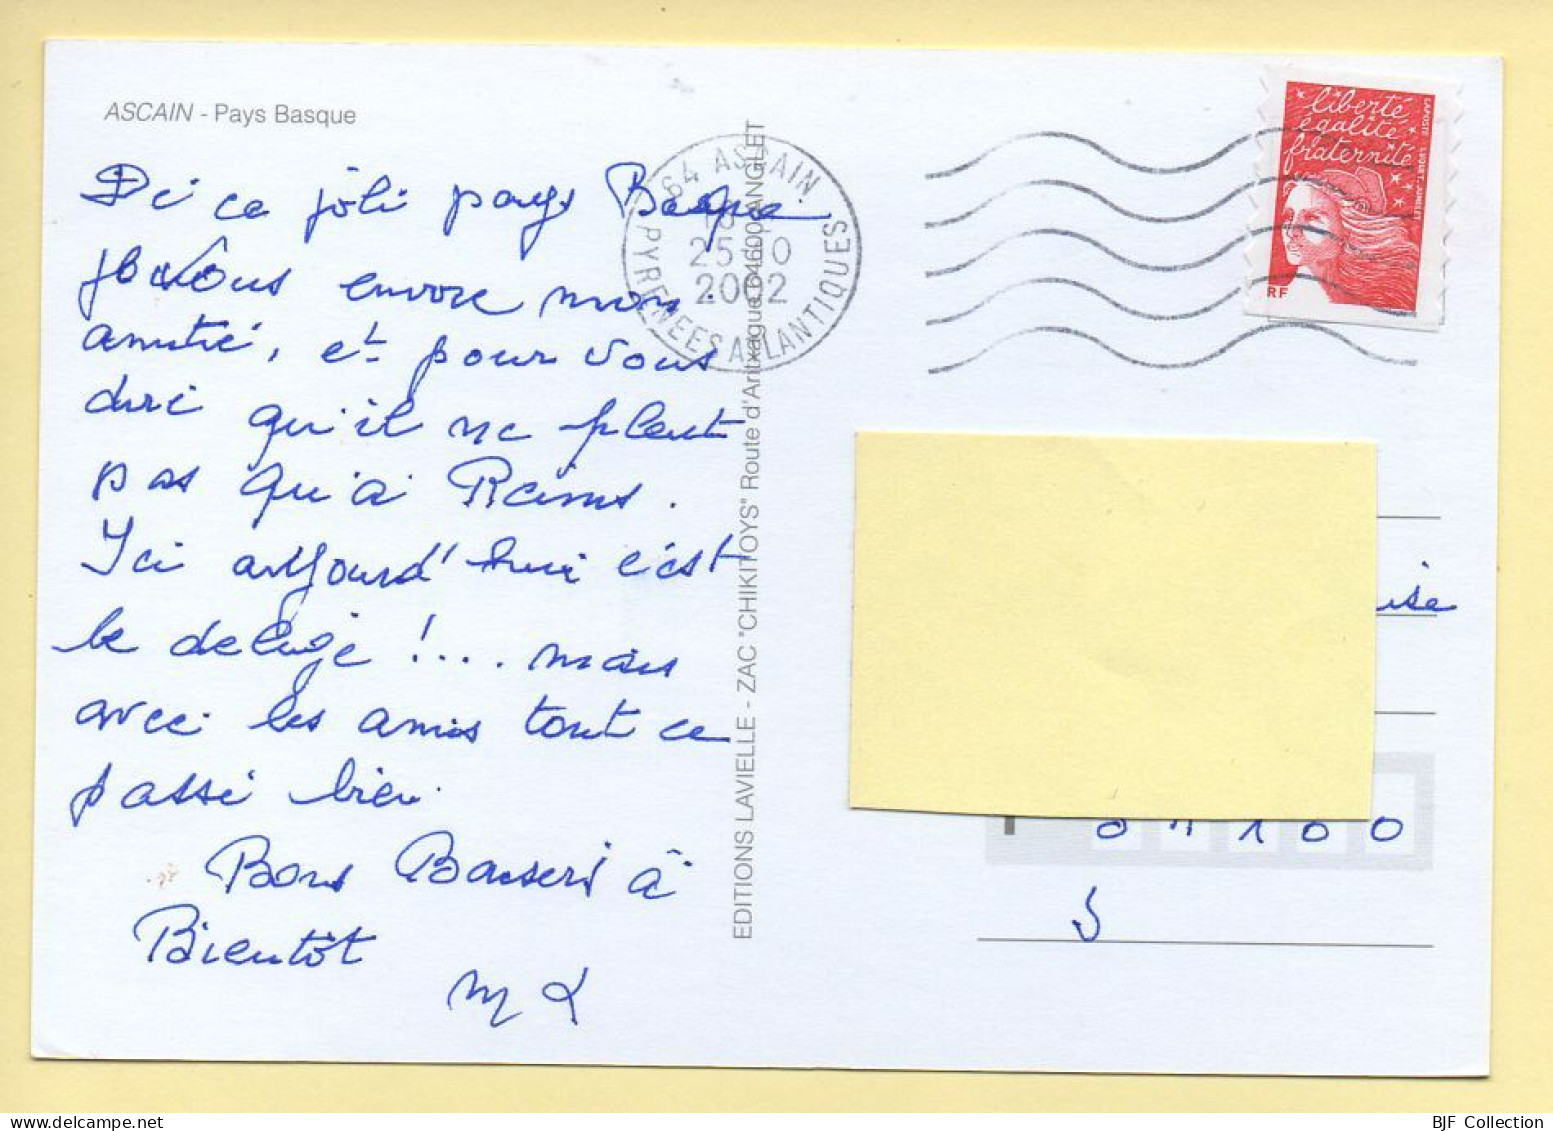 ASCAIN - Pays Basque
De ce joli pays Basque
je vous envoie mon
amitié, et pour vous
dire qu'il ne pleut
pas qu'à Reims.
Ici aujourd'hui c'est
le deluge !... mais
avec les amis tout ce
passe bien.
Bons Baisers à
Bientôt
EDITIONS LAVIELLE - ZAC "CHIKITOYS" Route d'Aritxague 64600 ANGLET
64 ASCAIN
25-10
2002
PYRENEES ATLANTIQUES
liberté
égalité
fraternité
LAPOSTE LUQUET.JUMELET
RF
ise
100
BJF Collection